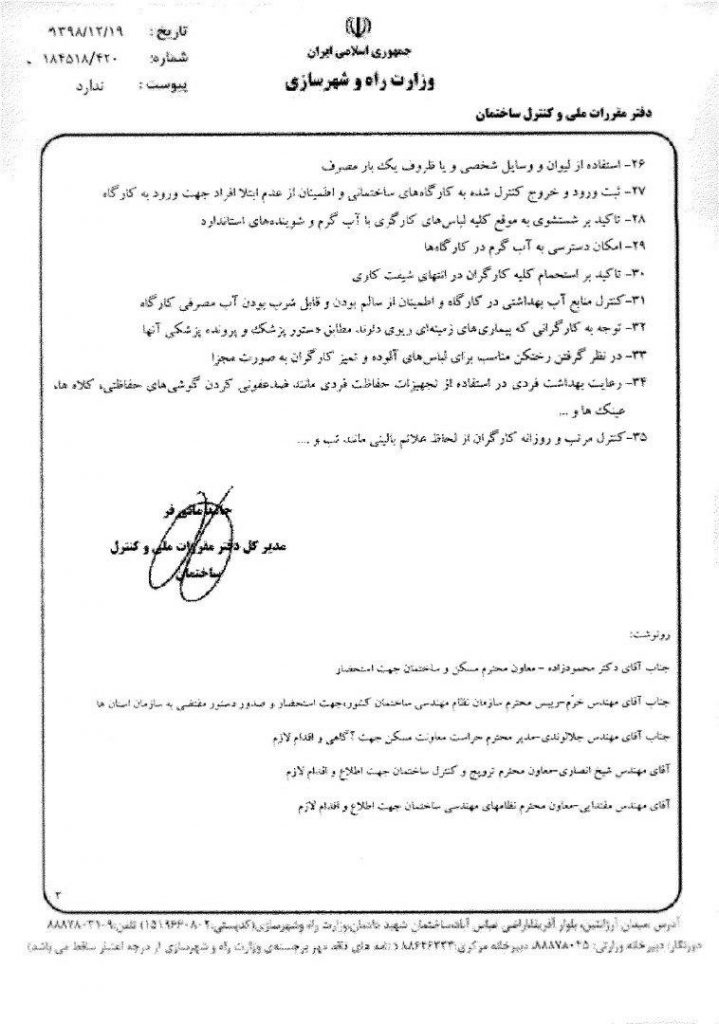 جمهوری اسلامی ایران
وزارت راه و شهرسازی
تاریخ : ۱۳۹۸/۱۲/۱۹
شماره: ۱۸۴۵۱۸/۴۲۰
پیوست : ندارد
دفتر مقررات ملی و کنترل ساختمان
۲۶- استفاده از لیوان و وسایل شخصی و یا ظروف یک بار مصرف
۲۷- ثبت ورود و خروج کنترل شده به کارگاه‌های ساختمانی و اطمینان از عدم ابتلا افراد جهت ورود به کارگاه
۲۸- تاکید بر شستشوی به موقع کلیه لباس‌های کارگری با آب گرم و شوینده‌های استاندارد
۲۹- امکان دسترسی به آب گرم در کارگاه‌ها
۳۰- تاکید بر استحمام کلیه کارگران در انتهای شیفت کاری
۳۱-کنترل منابع آب بهداشتی در کارگاه و اطمینان از سالم بودن و قابل شرب بودن آب مصرفی کارگاه
۳۲- توجه به کارگرانی که بیماری‌های زمینه‌ای ریوی دارند مطابق دستور پزشک و پرونده پزشکی آنها
۳۳- در نظر گرفتن رختکن مناسب برای لباس‌های آلوده و تمیز کارگران به صورت مجزا
۳۴- رعایت بهداشت فردی در استفاده از تجهیزات حفاظت فردی مانند ضدعفونی کردن گوشی‌های حفاظتی، کلاه ها،
عینک ها و ...
۳۵-کنترل مرتب و روزانه کارگران از لحاظ علائم بالینی مانند تب و ....
حامد مانی فر
مدیر کل دفتر مقررات ملی و کنترل
ساختمان
رونوشت:
جناب آقای دکتر محمودزاده - معاون محترم مسکن و ساختمان جهت استحضار
جناب آقای مهندس خرّم-رییس محترم سازمان نظام مهندسی ساختمان کشور،جهت استحضار و صدور دستور مقتضی به سازمان استان ها
جناب آقای مهندس جلالوندی-مدیر محترم حراست معاونت مسکن جهت آگاهی و اقدام لازم
آقای مهندس شیخ انصاری-معاون محترم ترویج و کنترل ساختمان جهت اطلاع و اقدام لازم
آقای مهندس مقتدایی-معاون محترم نظامهای مهندسی ساختمان جهت اطلاع و اقدام لازم
۲
آدرس :میدان آرژانتین، بلوار آفریقا،اراضی عباس آباد،ساختمان شهید دادمان،وزارت راه وشهرسازی(کدپستی:۱۵۱۹۶۶۰۸۰۲) تلفن:۹-۸۸۸۷۸۰۳۱
دورنگار: دبیرخانه وزارتی: ۸۸۸۷۸۰۴۵، دبیرخانه مرکزی:۸۸۶۴۶۲۳۳ ( نامه های فاقد مهر برجسته‌ی وزارت راه و شهرسازی از درجه اعتبار ساقط می باشد)